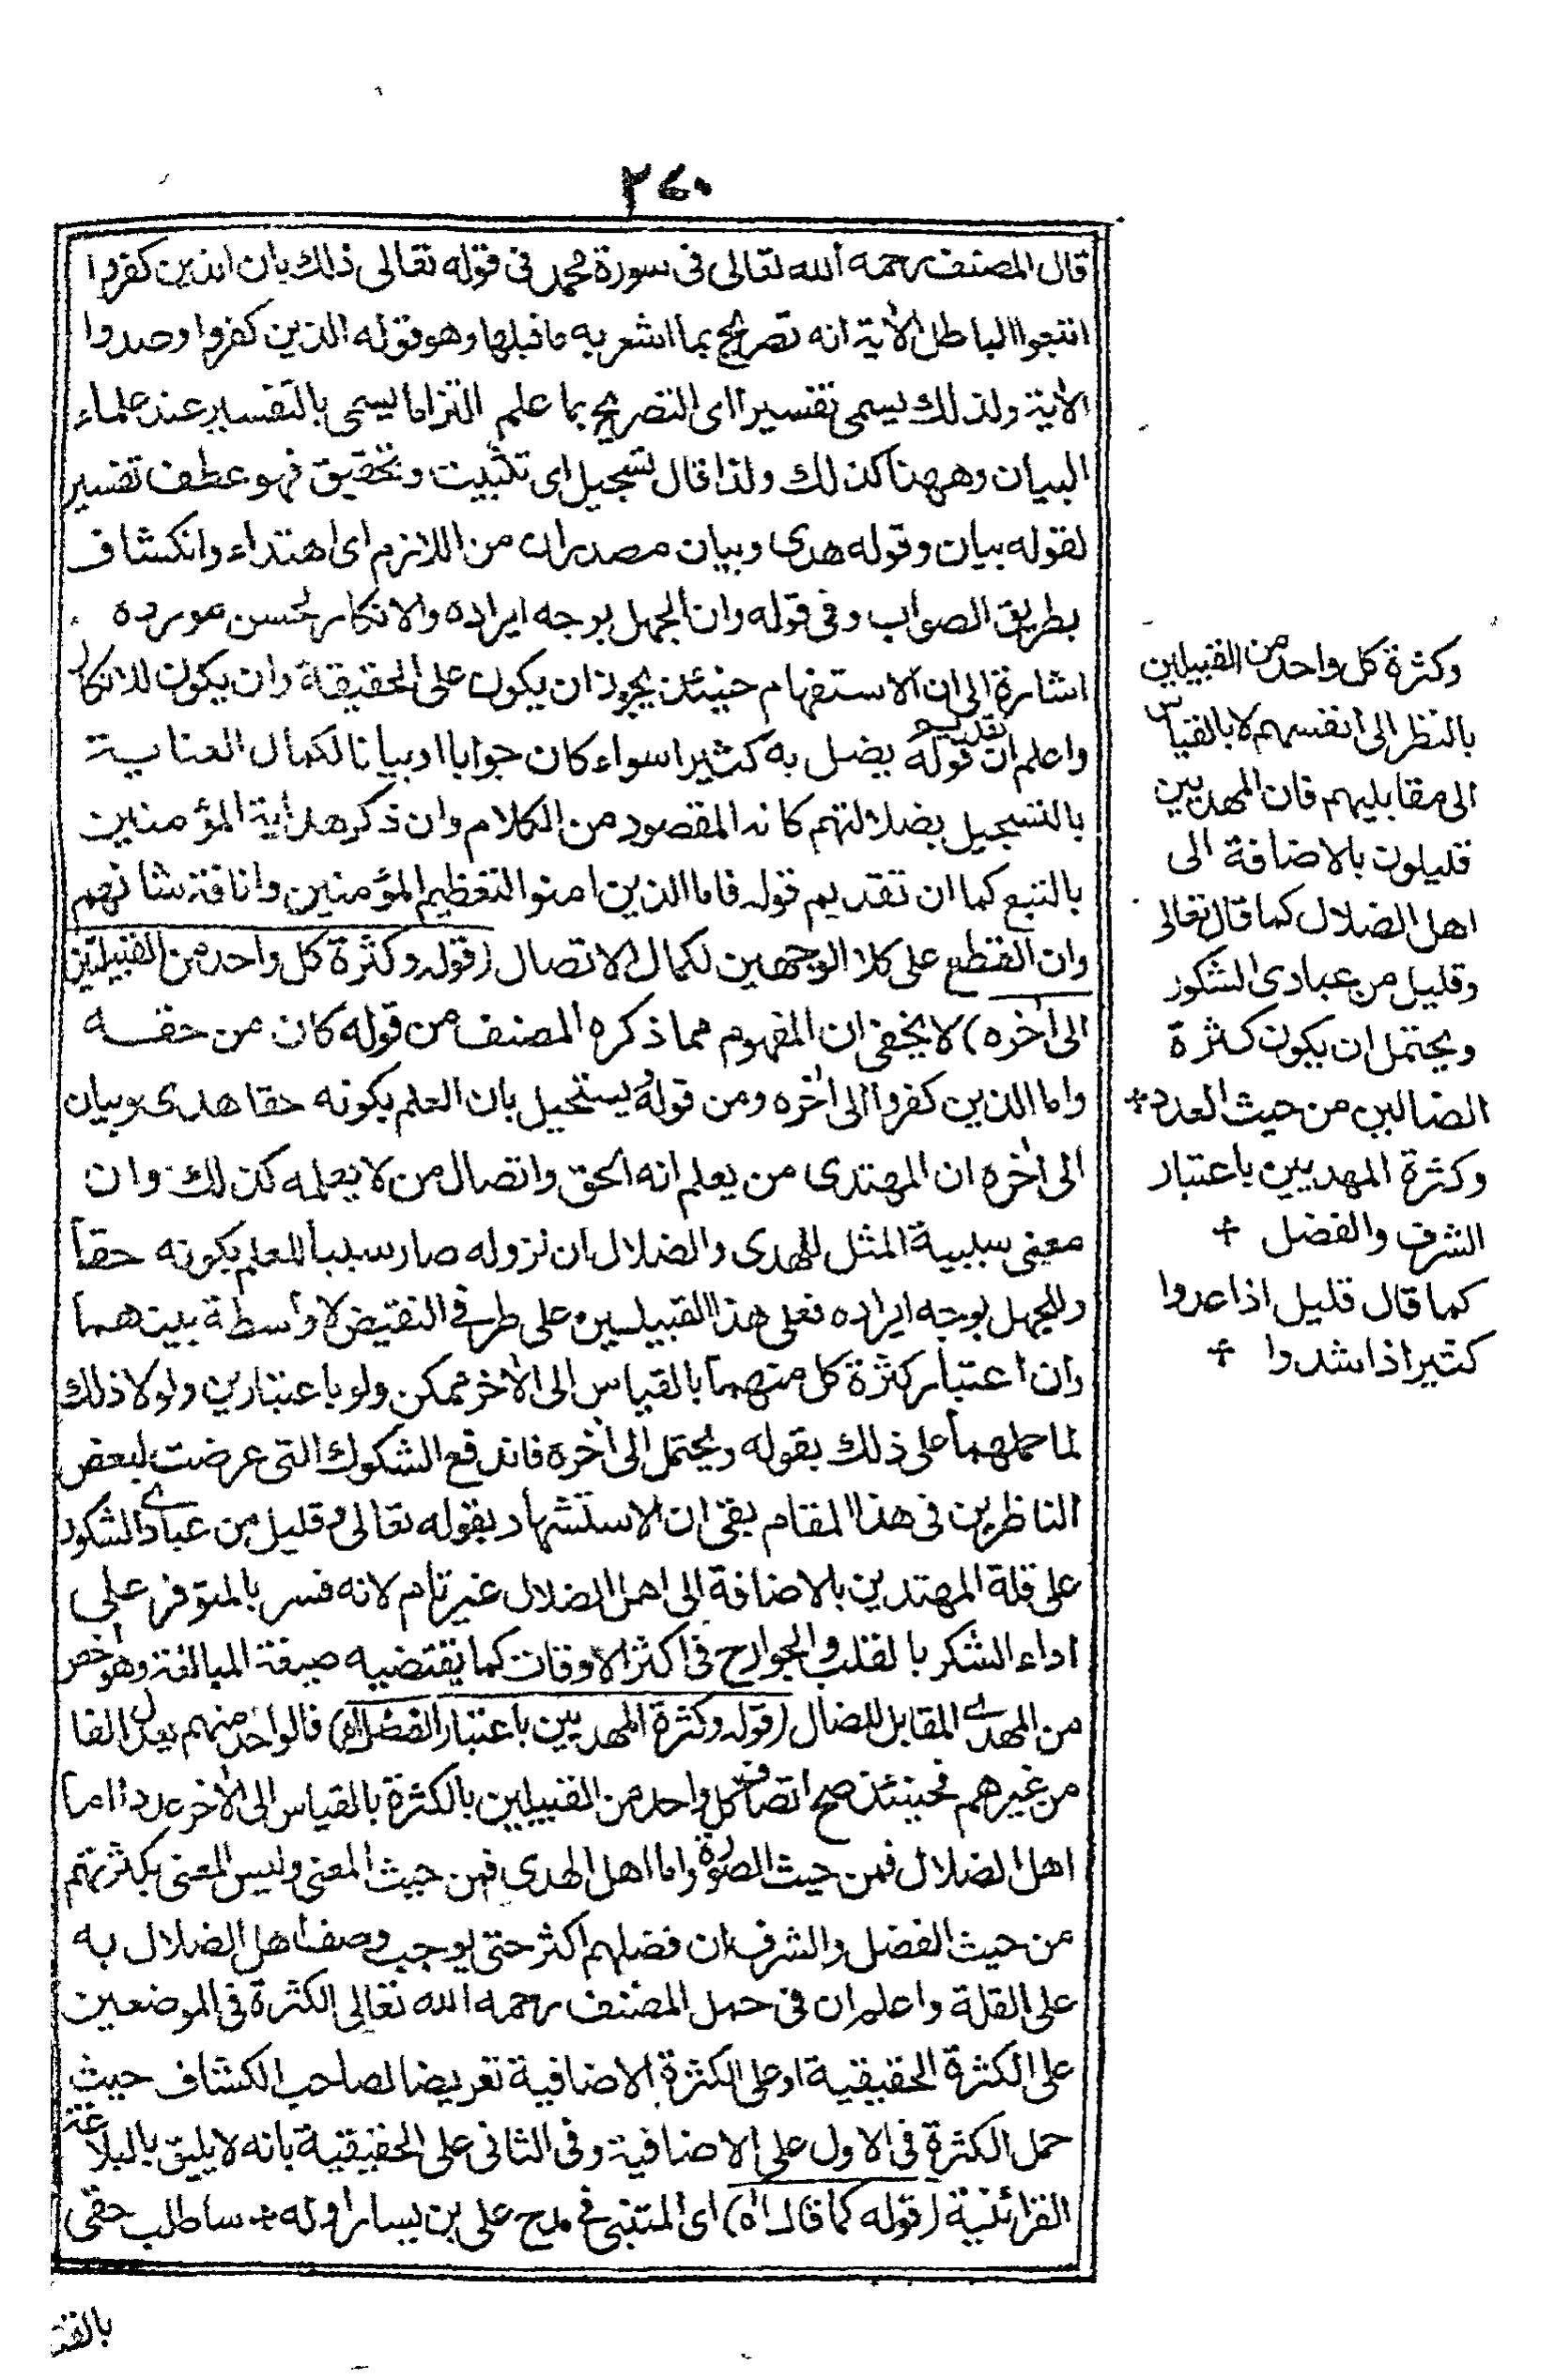 ٢٤٠
قال المصنف رحمه الله تعالى فى سورة محمد فى قوله تعالى ذلك بان الذين كفروا
اتبعوا الباطل الأية انه تصريح بما اشعر به ما قبلها وهو قوله الذين كفروا وصدوا
الأية ولذلك يسمى تفسيرا اى التصريح بما علم التزاما يسمى بالتفسير عند علماء
البيان وههنا كذلك ولذا قال تسجيل اى تثبيت وتحقيق فهو عطف تفسير
لقوله بيان وقوله هدى وبيان مصدران من اللازم اى اهتداء وانكشاف
بطريق الصواب وفى قوله وان الجهل بوجه ايراده والانكار لحسن مورده
اشارة الى ان الاستفهام حينئذ يجوز ان يكون على الحقيقة وان يكون للانكار
واعلم ان تقديم قوله يضل به كثيرا سواء كان جوابا او بيانا لكمال العناية
بالتسجيل بضلالتهم كانه المقصود من الكلام وان ذكر هداية المؤمنين
بالتبع كما ان تقديم قوله فاما الذين امنوا لتعظيم المؤمنين وانافة شانهم
وان القطع على كلا الوجهين لكمال الاتصال (قوله وكثرة كل واحد من القبيلتين
الى أخره) لا يخفى ان المفهوم مما ذكره المصنف من قوله كان من حقه
واما الذين كفروا الى أخره ومن قوله يستحيل بان العلم بكونه حقا هدى وبيان
الى أخره ان المهتدى من يعلم انه الحق واتصال من لا يعلمه كذلك وان
معنى سببية المثل للهدى والضلال ان نزوله صار سببا للعلم بكونه حقا
وللجهل بوجه ايراده فعلى هذا القبيلين على طرفى النقيض لا واسطة بينهما
وان اعتبار كثرة كل منهما بالقياس الى الأخر ممكن ولو باعتبارين ولولا ذلك
لما حملهما على ذلك بقوله ويحتمل الى أخره فاندفع الشكوك التى عرضت لبعض
الناظرين فى هذا المقام بقى ان الاستشهاد بقوله تعالى وقليل من عبادى الشكور
على قلة المهتدين بالاضافة الى اهل الضلال غير تام لانه فسر بالمتوفر على
اداء الشكر بالقلب والجوارح فى اكثر الاوقات كما يقتضيه صيغة المبالغة وهو اخص
من المهدى المقابل للضال (قوله وكثرة المهديين باعتبار الفضل اه) فالواحد منهم يعدل الفا
من غيرهم فحينئذ صح اتصاف كل واحد من القبيلين بالكثرة بالقياس الى الأخر عددا اما
اهل الضلال فمن حيث الصورة واما اهل الهدى فمن حيث المعنى وليس المعنى بكثرتهم
من حيث الفضل والشرف ان فضلهم اكثر حتى يوجب وصف اهل الضلال به
على القلة واعلم ان فى حمل المصنف رحمه الله تعالى الكثرة فى الموضعين
على الكثرة الحقيقية او على الكثرة الاضافية تعريضا لصاحب الكشاف حيث
حمل الكثرة فى الاول على الاضافية وفى الثانى على الحقيقية بانه لا يليق بالبلاغة
القرائنية (قوله كما قال اه) اى المتنبى فى مدح على بن يسار اوله * ساطلب حقى
بالقنـ
وكثرة كل واحد من القبيلين
بالنظر الى انفسهم لا بالقياس
الى مقابليهم فان المهديين
قليلون بالاضافة الى
اهل الضلال كما قال تعالى
وقليل من عبادى الشكور
ويحتمل ان يكون كثرة
الضالين من حيث العدد *
وكثرة المهديين باعتبار
الشرف والفضل *
كما قال قليل اذا عدوا
كثير اذا شدوا *